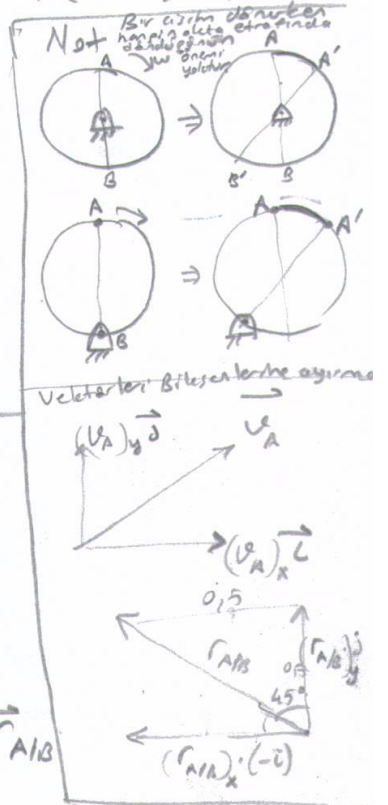 Not Bir cisim dönerken
hangi nokta etrafında
döndüğünün
önemi
yoktur
A
B
⇒
A
A'
B'
B
A
B
⇒
A
A'
Vektörleri Bileşenlerine ayırma
(V_A)_y j
V_A
(V_A)_x i
0,5
r_A/B
0,5
(r_A/B)_y j
45°
(r_A/B)_x (-i)
r_A/B